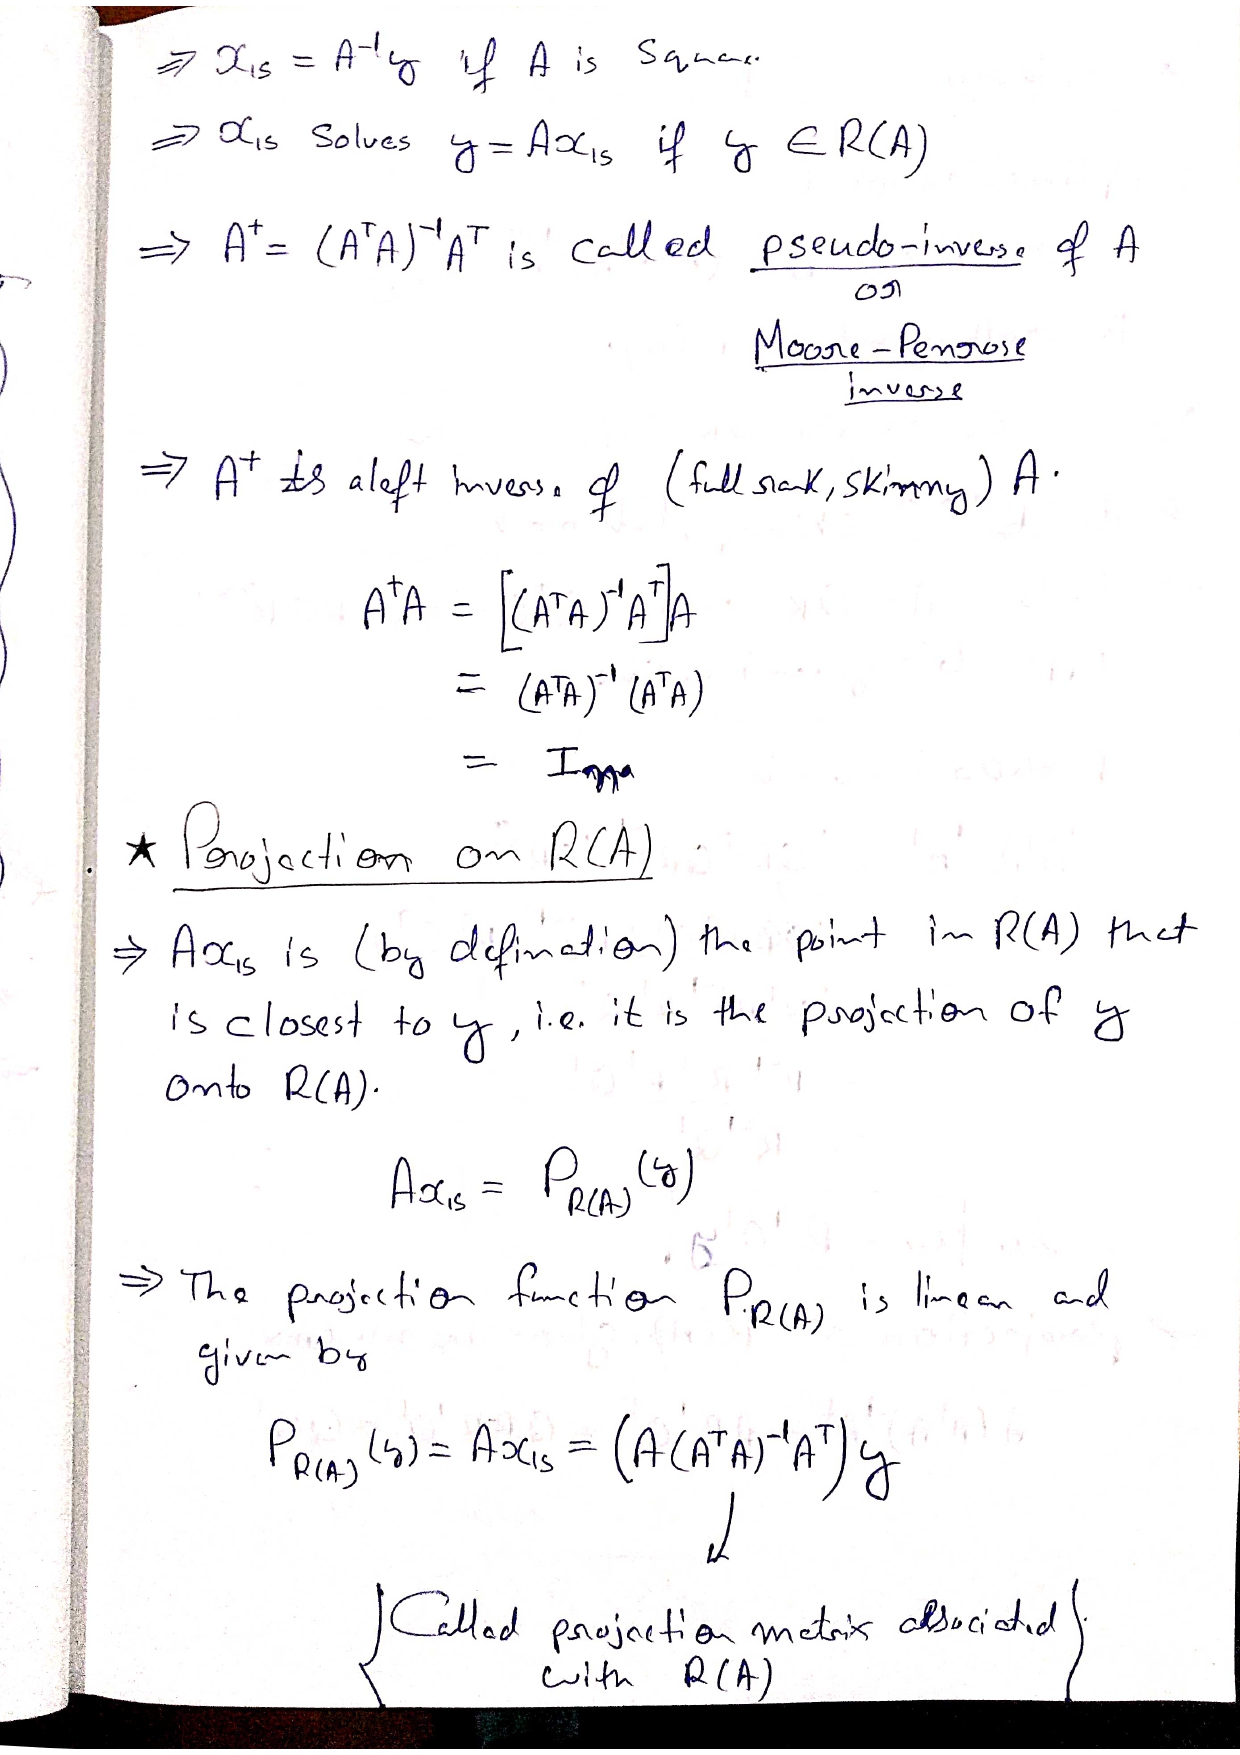 ⇒ x_ls = A⁻¹y if A is Square.
⇒ x_ls Solves y = Ax_ls if y ∈ R(A)
⇒ A⁺ = (AᵀA)⁻¹Aᵀ is called pseudo-inverse of A
or
Moore-Penrose
inverse
⇒ A⁺ is a left inverse of (full rank, skinny) A.
A⁺A = [(AᵀA)⁻¹Aᵀ]A
= (AᵀA)⁻¹ (AᵀA)
= I
★ Projection on R(A)
⇒ Ax_ls is (by defination) the point in R(A) that
is closest to y, i.e. it is the projection of y
onto R(A).
Ax_ls = P_R(A) (y)
⇒ The projection function P_R(A) is linear and
given by
P_R(A) (y) = Ax_ls = (A(AᵀA)⁻¹Aᵀ) y
{Called projection matrix associated
with R(A)}